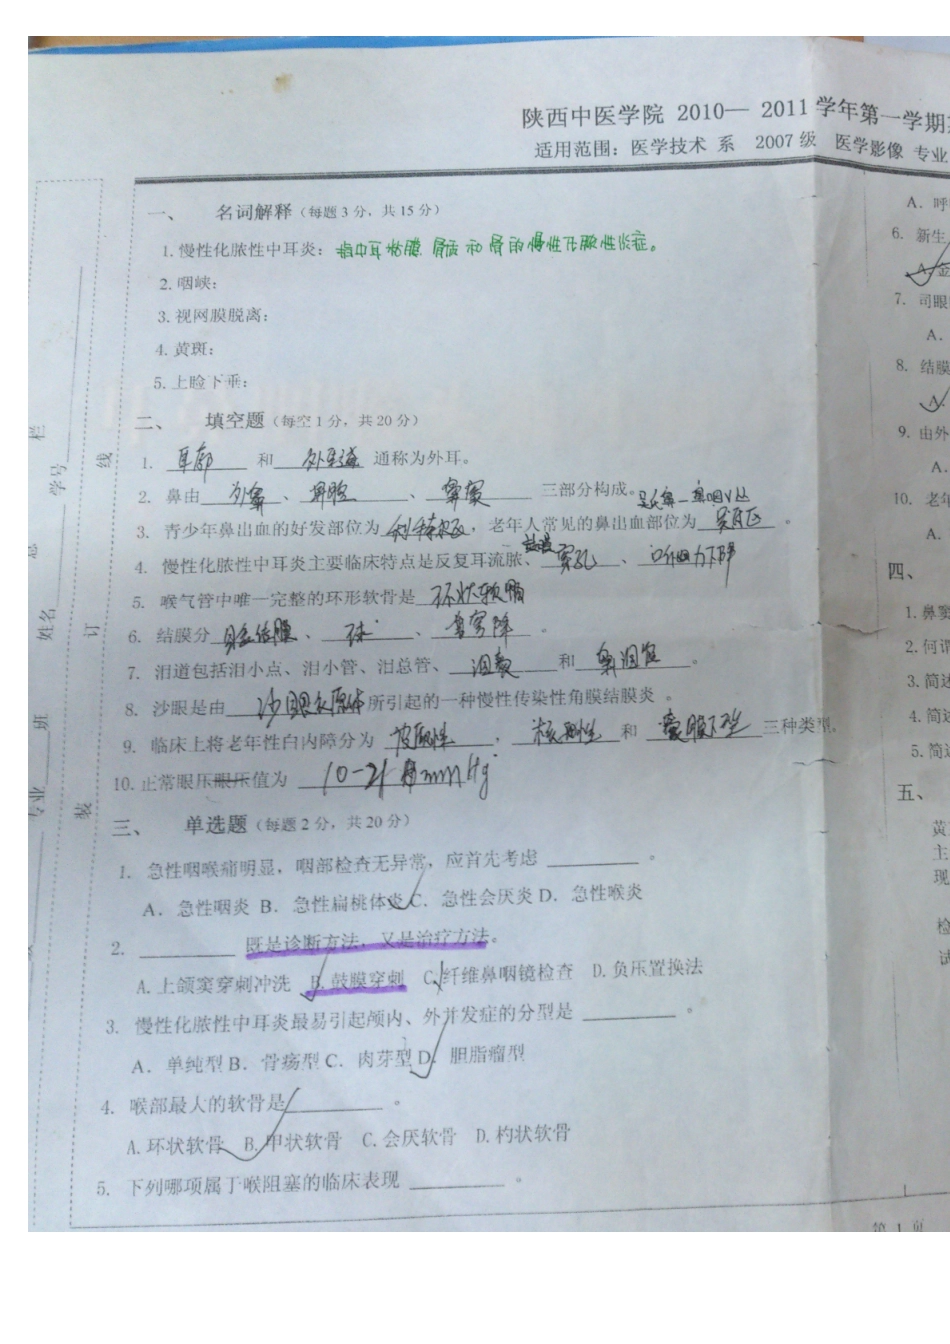 陕西中医学院 2010— 2011 学年第一学期
适用范围：医学技术 系 2007 级 医学影像 专业
一、 名词解释（每题 3 分，共 15 分）
1. 慢性化脓性中耳炎：指中耳粘膜 骨膜 和 骨 的慢性化脓性炎症。
2. 咽峡：
3. 视网膜脱离：
4. 黄斑：
5. 上睑下垂：
二、 填空题（每空 1 分，共 20 分）
1. 耳郭 和 外耳道 通称为外耳。
2. 鼻由 外鼻 、 鼻腔 、 鼻窦 三部分构成。
3. 青少年鼻出血的好发部位为 利特尔区，老年人常见的鼻出血部位为 。
4. 慢性化脓性中耳炎主要临床特点是反复耳流脓、 鼓膜 穿孔 、 听力下降
5. 喉气管中唯一完整的环形软骨是 环状软骨
6. 结膜分 结膜 、 球 、 穹窿 。
7. 泪道包括泪小点、泪小管、泪总管、 泪囊 和 鼻泪管 。
8. 沙眼是由 沙眼衣原体 所引起的一种慢性传染性角膜结膜炎 。
9. 临床上将老年性白内障分为 皮质性 ， 核性 和 囊膜下型 三种类型。
10. 正常眼压眼压值为 10-21 mmHg
三、 单选题（每题 2 分，共 20 分）
1. 急性咽喉痛明显，咽部检查无异常，应首先考虑 。
A．急性咽炎 B．急性扁桃体炎 C．急性会厌炎 D．急性喉炎
2. 既是诊断方法，又是治疗方法。
A. 上颌窦穿刺冲洗 B. 鼓膜穿刺 C. 纤维鼻咽镜检查 D. 负压置换法
3. 慢性化脓性中耳炎最易引起颅内、外并发症的分型是 。
A．单纯型 B．骨疡型 C．肉芽型 D．胆脂瘤型
4. 喉部最大的软骨是 。
A. 环状软骨 B. 甲状软骨 C. 会厌软骨 D. 杓状软骨
5. 下列哪项属于喉阻塞的临床表现 。
第 1 页
A．呼
6. 新生
A. 金
7. 司眼
A．
8. 结膜
A.
9. 由外
A．
10. 老年
A．
四、
1. 鼻窦
2. 何谓
3. 简述
4. 简述
5. 简述
五、
黄
主
现
检
试
学号
姓名
班
专业
线
订
装